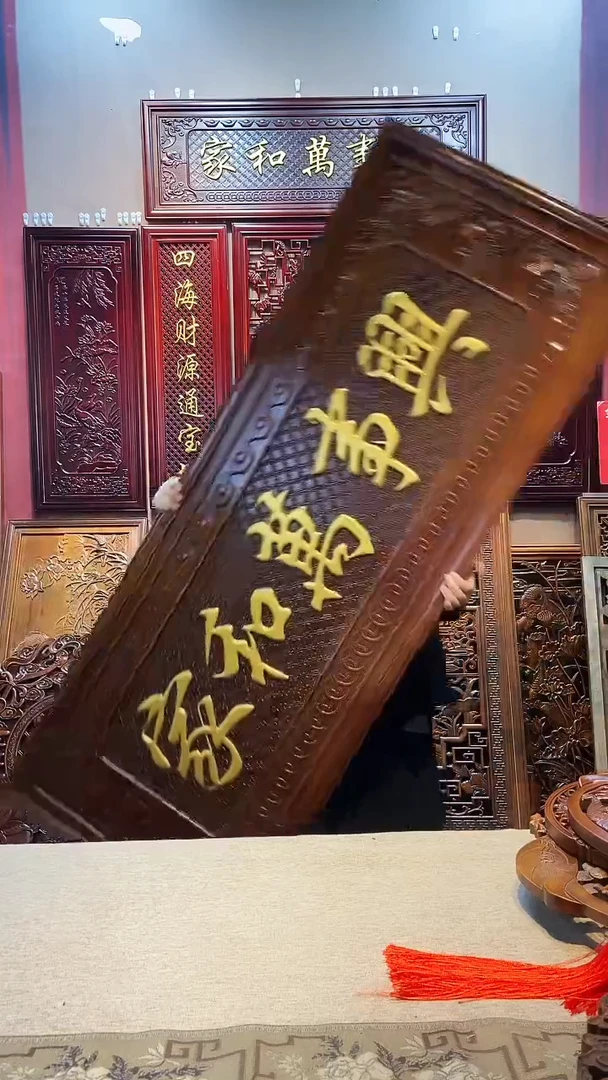 家和萬事
四海財源通宝
家和萬事興